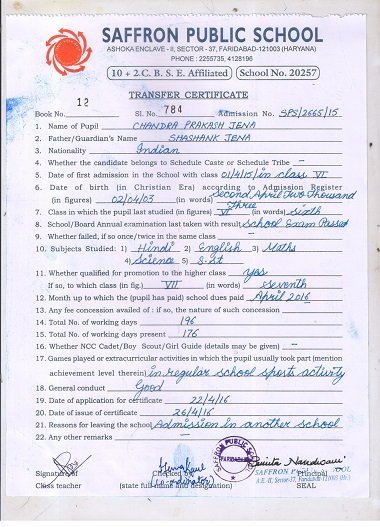 SAFFRON PUBLIC SCHOOL
ASHOKA ENCLAVE - II, SECTOR - 37, FARIDABAD-121003 (HARYANA)
PHONE : 2255735, 4128196
10 + 2 C. B. S. E. Affiliated School No. 20257
TRANSFER CERTIFICATE
Book No. 12 Sl. No. 784 Admission No. SPS/2665/15
1. Name of Pupil CHANDRA PRAKASH JENA
2. Father/Guardian's Name SHASHANK JENA
3. Nationality Indian
4. Whether the candidate belongs to Schedule Caste or Schedule Tribe –
5. Date of first admission in the School with class 01/4/15/in class VI
6. Date of birth (in Christian Era) according to Admission Register
(in figures) 02/04/03 (in words) Second April Two Thousand three
7. Class in which the pupil last studied (in figures) VI (in words) sixth
8. School/Board Annual examination last taken with result School Exam Passed
9. Whether failed, if so once/twice in the same class –
10. Subjects Studied: 1) Hindi 2) English 3) Maths
4) Science 5) S.st
11. Whether qualified for promotion to the higher class yes
If so, to which class (in fig.) VII (in words) seventh
12. Month up to which the (pupil has paid) school dues paid April 2016
13. Any fee concession availed of : if so, the nature of such concession –
14. Total No. of working days 196
15. Total No. of working days present 176
16. Whether NCC Cadet/Boy Scout/Girl Guide (details may be given) –
17. Games played or extracurricular activities in which the pupil usually took part (mention
achievement level therein) in regular school sports activity
18. General conduct Good
19. Date of application for certificate 22/4/16
20. Date of issue of certificate 26/4/16
21. Reasons for leaving the school Admission in another school
22. Any other remarks –
SAFFRON PUBLIC SCHOOL
FARIDABAD
SAFFRON PUBLIC SCHOOL
A.E.-II, Sector-37, Faridabad-121003 (Hr.)
Signature of Checked by Principal
(co-ordinator)
Class teacher (state full name and designation) SEAL